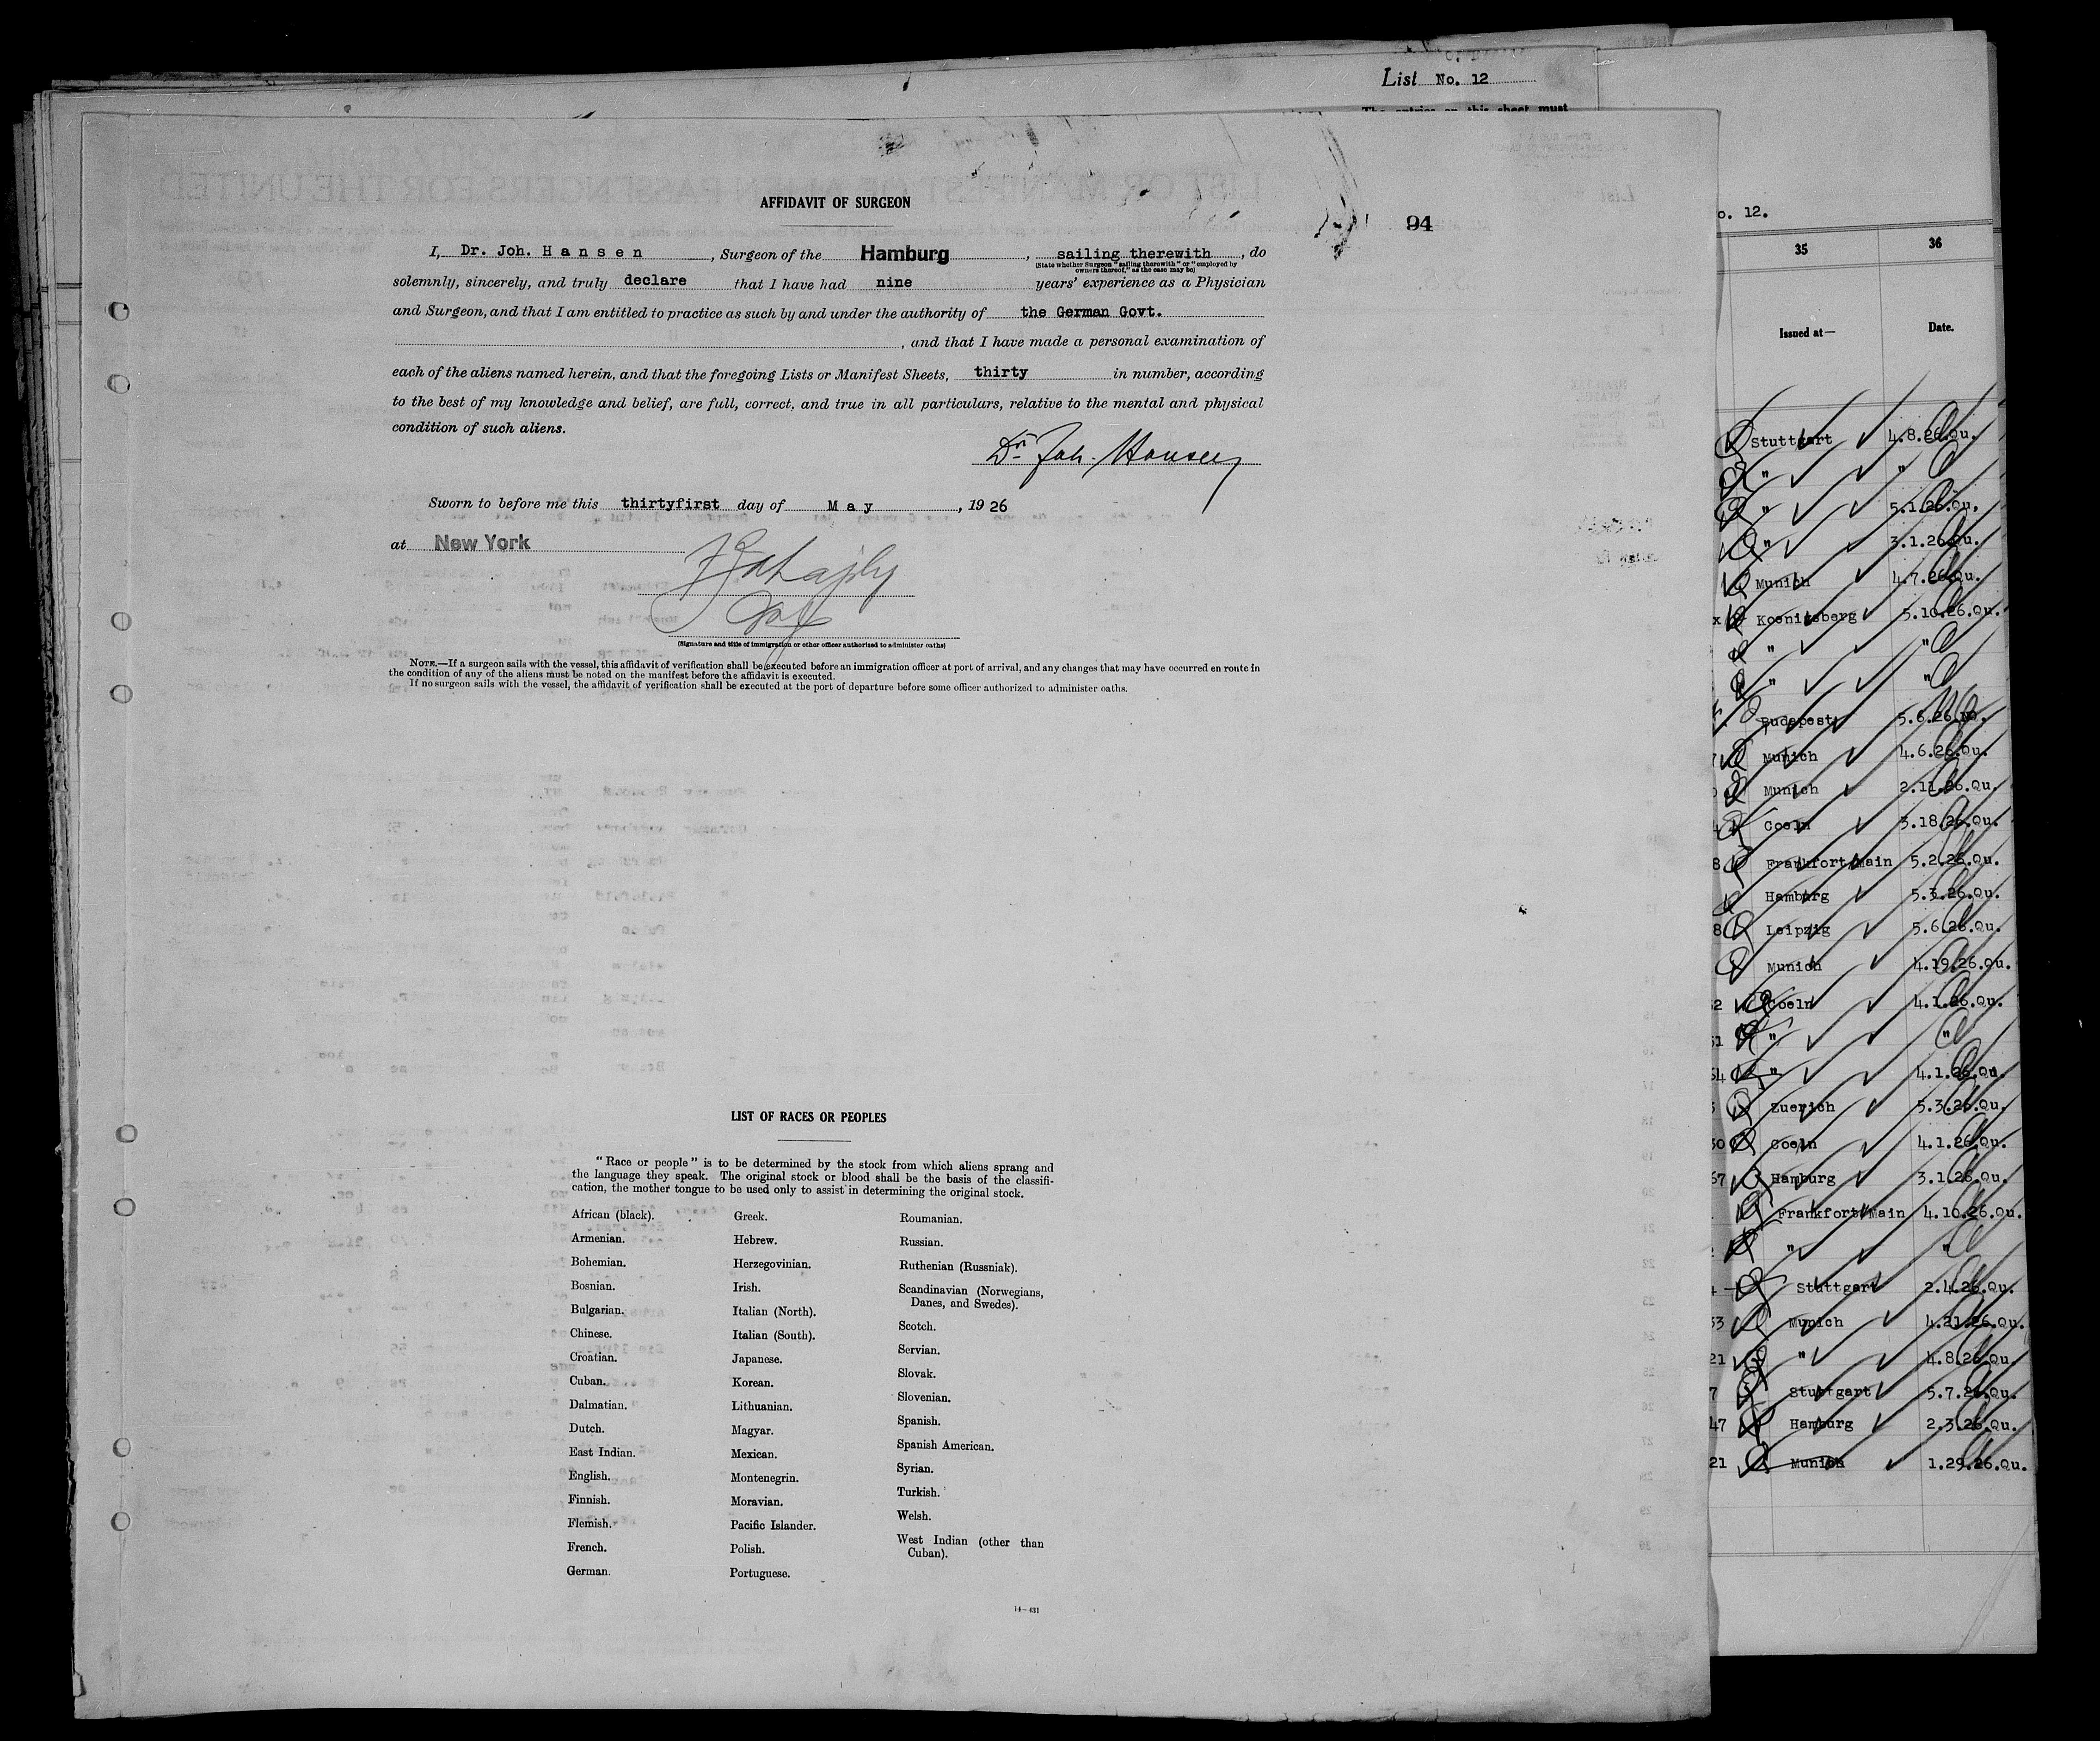 List No. 12
The entries on this sheet must
94
AFFIDAVIT OF SURGEON
I, Dr. Joh. Hansen, Surgeon of the Hamburg, sailing therewith, do
(State whether Surgeon "sailing therewith" or "employed by
owners thereof," as the case may be)
solemnly, sincerely, and truly declare that I have had nine years' experience as a Physician
and Surgeon, and that I am entitled to practice as such by and under the authority of the German Govt.
, and that I have made a personal examination of
each of the aliens named herein, and that the foregoing Lists or Manifest Sheets, thirty in number, according
to the best of my knowledge and belief, are full, correct, and true in all particulars, relative to the mental and physical
condition of such aliens.
Dr. Joh. Hansen
Sworn to before me this thirtyfirst day of May, 1926
at New York
(Signature and title of immigration or other officer authorized to administer oaths)
NOTE.—If a surgeon sails with the vessel, this affidavit of verification shall be executed before an immigration officer at port of arrival, and any changes that may have occurred en route in
the condition of any of the aliens must be noted on the manifest before the affidavit is executed.
If no surgeon sails with the vessel, the affidavit of verification shall be executed at the port of departure before some officer authorized to administer oaths.
LIST OF RACES OR PEOPLES
"Race or people" is to be determined by the stock from which aliens sprang and
the language they speak. The original stock or blood shall be the basis of the classifi-
cation, the mother tongue to be used only to assist in determining the original stock.
African (black).
Armenian.
Bohemian.
Bosnian.
Bulgarian.
Chinese.
Croatian.
Cuban.
Dalmatian.
Dutch.
East Indian.
English.
Finnish.
Flemish.
French.
German.
Greek.
Hebrew.
Herzegovinian.
Irish.
Italian (North).
Italian (South).
Japanese.
Korean.
Lithuanian.
Magyar.
Mexican.
Montenegrin.
Moravian.
Pacific Islander.
Polish.
Portuguese.
Roumanian.
Russian.
Ruthenian (Russniak).
Scandinavian (Norwegians,
Danes, and Swedes).
Scotch.
Servian.
Slovak.
Slovenian.
Spanish.
Spanish American.
Syrian.
Turkish.
Welsh.
West Indian (other than
Cuban).
14—431
o. 12.
35 36
Issued at— Date.
Stuttgart 4.8.26.Qu.
" "
" 5.1.26.Qu.
" 3.1.26.Qu.
Munich 4.7.26.Qu.
Koenigsberg 5.10.26.Qu.
" "
" "
Budapest 5.6.26.NQ.
Munich 4.6.26.Qu.
Munich 2.11.26.Qu.
Coeln 3.18.26.Qu.
8 Frankfort/Main 5.2.26.Qu.
Hamburg 5.3.26.Qu.
8 Leipzig 5.6.26.Qu.
Munich 4.19.26.Qu.
52 Coeln 4.1.26.Qu.
51 " "
54 " 4.1.26.Qu.
Zuerich 5.3.26.Qu.
30 Coeln 4.1.26.Qu.
67 Hamburg 3.1.26.Qu.
Frankfort/Main 4.10.26.Qu.
" "
4 Stuttgart 2.4.26.Qu.
33 Munich 4.21.26.Qu.
21 " 4.8.26.Qu.
7 Stuttgart 5.7.26.Qu.
47 Hamburg 2.3.26.Qu.
21 Munich 1.29.26.Qu.